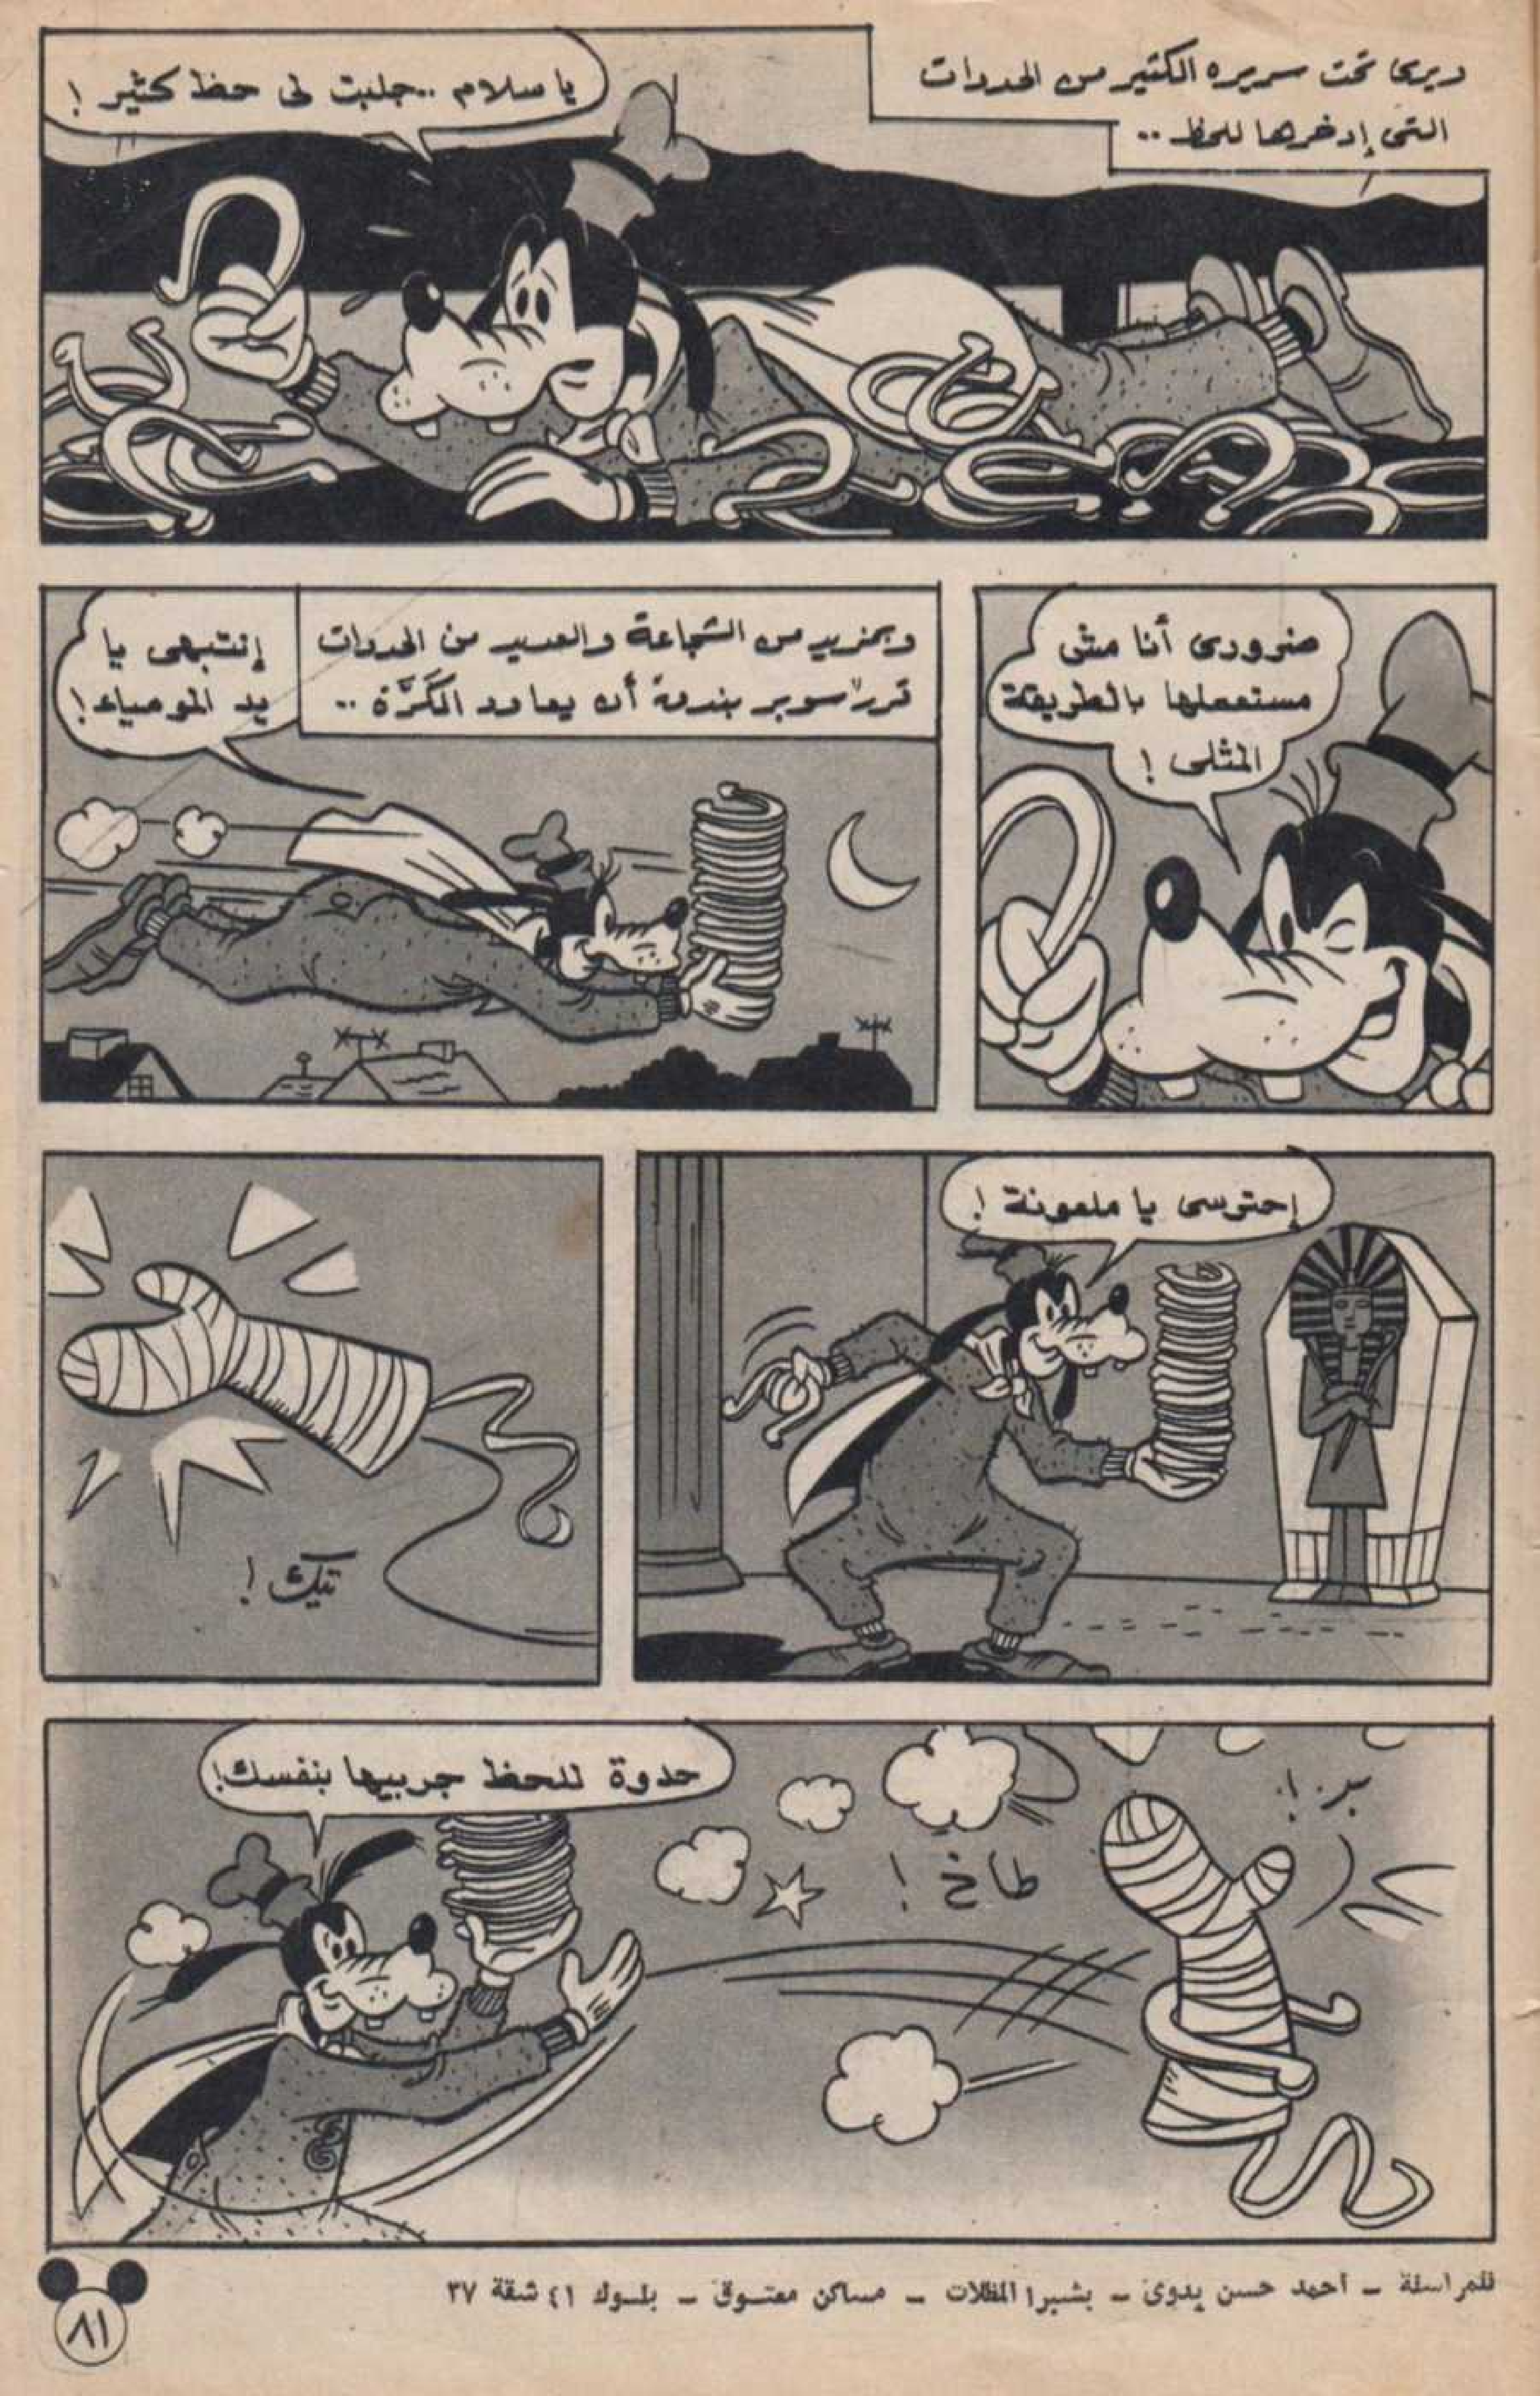 ويرى تحت سريره الكثير من الحدوات
التى إدخرها للحظ ..
يا سلام .. جلبت لى حظ كثير !
ضرورى أنا مش
مستعملها بالطريقة
المثلى !
وبمزيد من الشجاعة والعديد من الحدوات
قرر سوبر بندق أن يعاود الكَرَّة ..
إنتبهى يا
يد المومياء !
إحترسى يا ملعونة !
تيك !
حدوة للحظ جربيها بنفسك !
طاخ !
بر . !
للمراسلة - أحمد حسن بدوى - بشبرا المظلات - مساكن معتوق - بلوك ٤١ شقة ٣٧
٨١